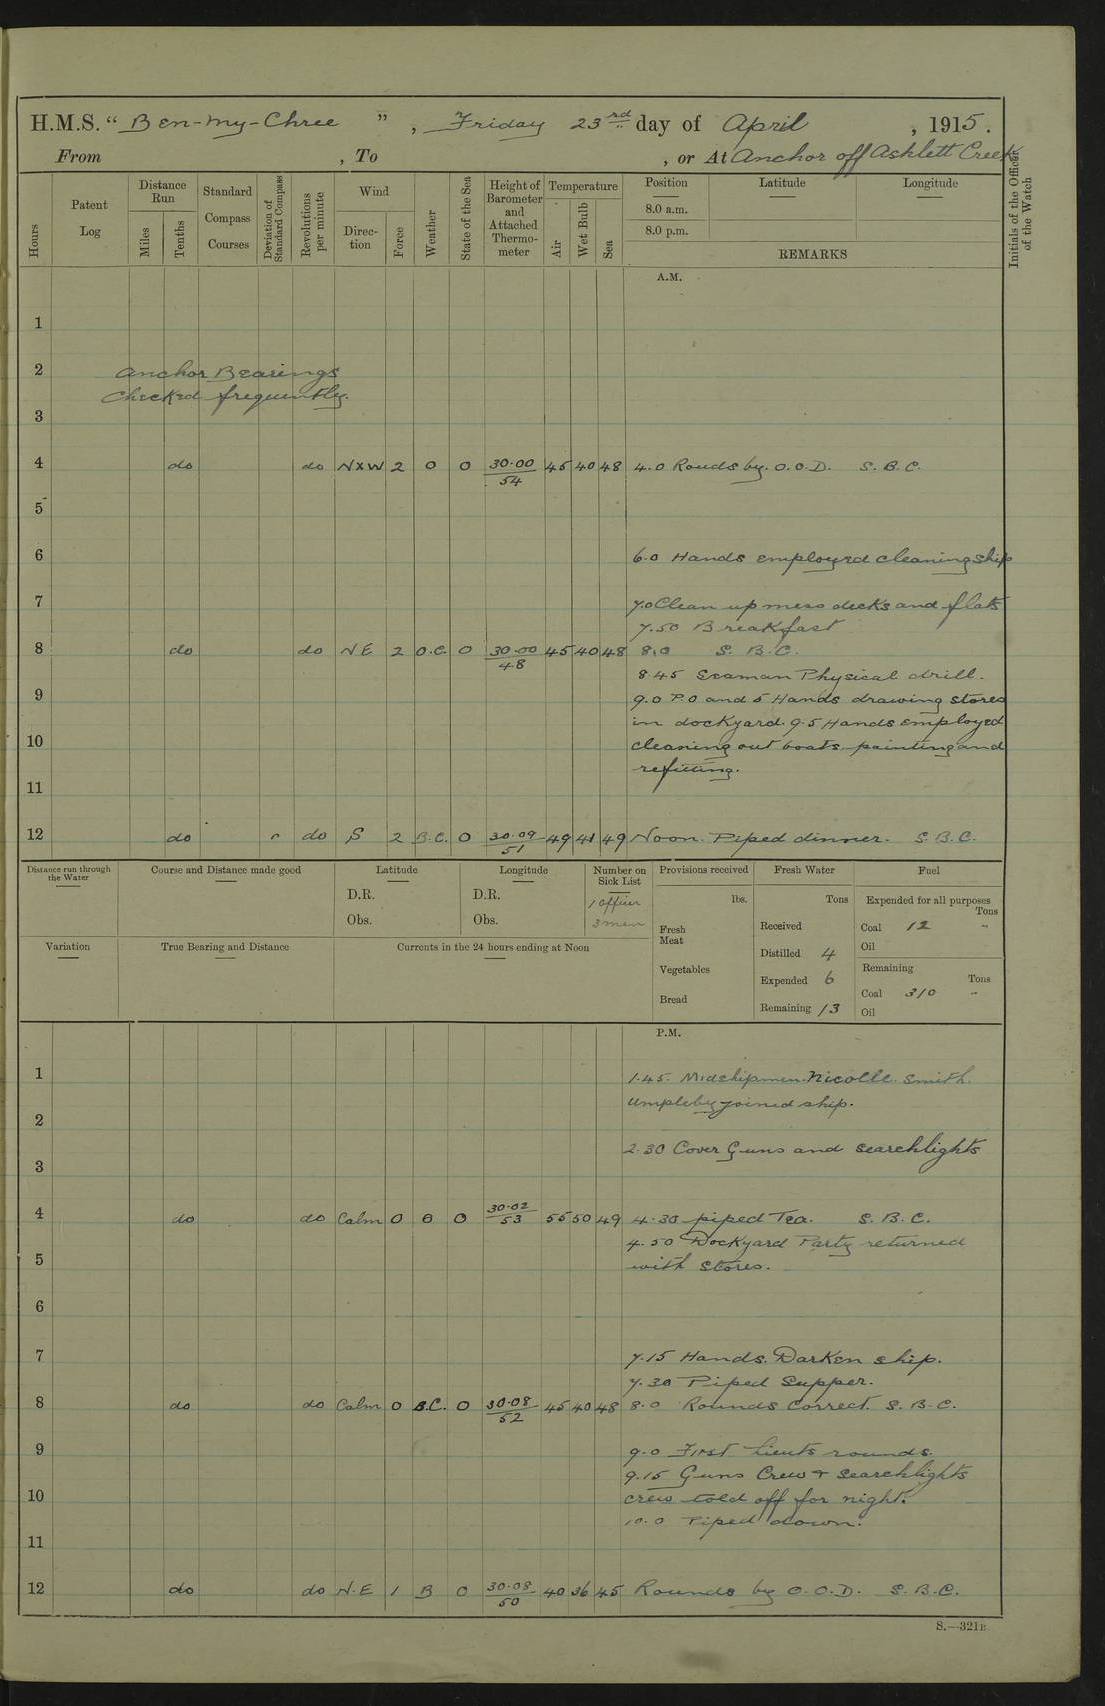 H.M.S. “ Ben-my-Chree ” , Friday 23rd day of April , 1915 .
From , To , or At Anchor off Ashlett Creek
Hours Patent Log Distance Run Miles Tenths Standard Compass Courses Deviation of Standard Compass Revolutions per minute Wind Direc-tion Force Weather State of the Sea Height of Barometer and Attached Thermo-meter Temperature Air Wet Bulb Sea Position Latitude Longitude Initials of the Officer of the Watch
8.0 a.m.
8.0 p.m.
REMARKS
A.M.
1
2 Anchor Bearings
Checked frequently.
3
4 do do NXW 2 O O 30.00 45 40 48 4.0 Rouds by. O.O.D. S.B.C.
54
5
6 6.0 Hands employed cleaning ship
7 7.0 Clean up mess decks and flats
7.50 Breakfast
8 do do NE 2 O.C. O 30.00 45 40 48 8.0 S.B.C.
48
8.45 Seaman Physical drill.
9 9.0 P.O and 5 Hands drawing stores
in dockyard. 9.5 Hands employed
10 cleaning out boats. painting and
refitting.
11
12 do do S 2 B.C. O 30.09 49 41 49 Noon. Piped dinner. S.B.C.
51
Distance run through the Water Course and Distance made good Latitude Longitude Number on Sick List Provisions received Fresh Water Fuel
D.R. D.R. 1 officer lbs. Tons Expended for all purposes Tons
Obs. Obs. 3 men Fresh Meat Received Coal 12 "
Variation True Bearing and Distance Currents in the 24 hours ending at Noon Distilled 4 Oil
Vegetables Expended 6 Remaining Tons
Bread Remaining 13 Coal 310 "
Oil
P.M.
1 1.45. Midshipmen. Nicolle. Smith.
Umpleby joined ship.
2
2.30 Cover Guns and searchlights
3
4 do do Calm O O O 30.02 55 50 49 4.30 piped Tea. S.B.C.
53
4.50 Dockyard Party returned
5 with stores.
6
7 7.15 Hands. Darken ship.
7.30 Piped Supper.
8 do do Calm O B.C. O 30.08 45 40 48 8.0 Rounds Correct. S.B.C.
52
9 9.0 First Lieuts rounds.
9.15 Guns Crew + searchlights
10 crews told off for night.
10.0 Piped down.
11
12 do do N.E 1 B O 30.08 40 36 45 Rounds by O.O.D. S.B.C.
50
S.—321B